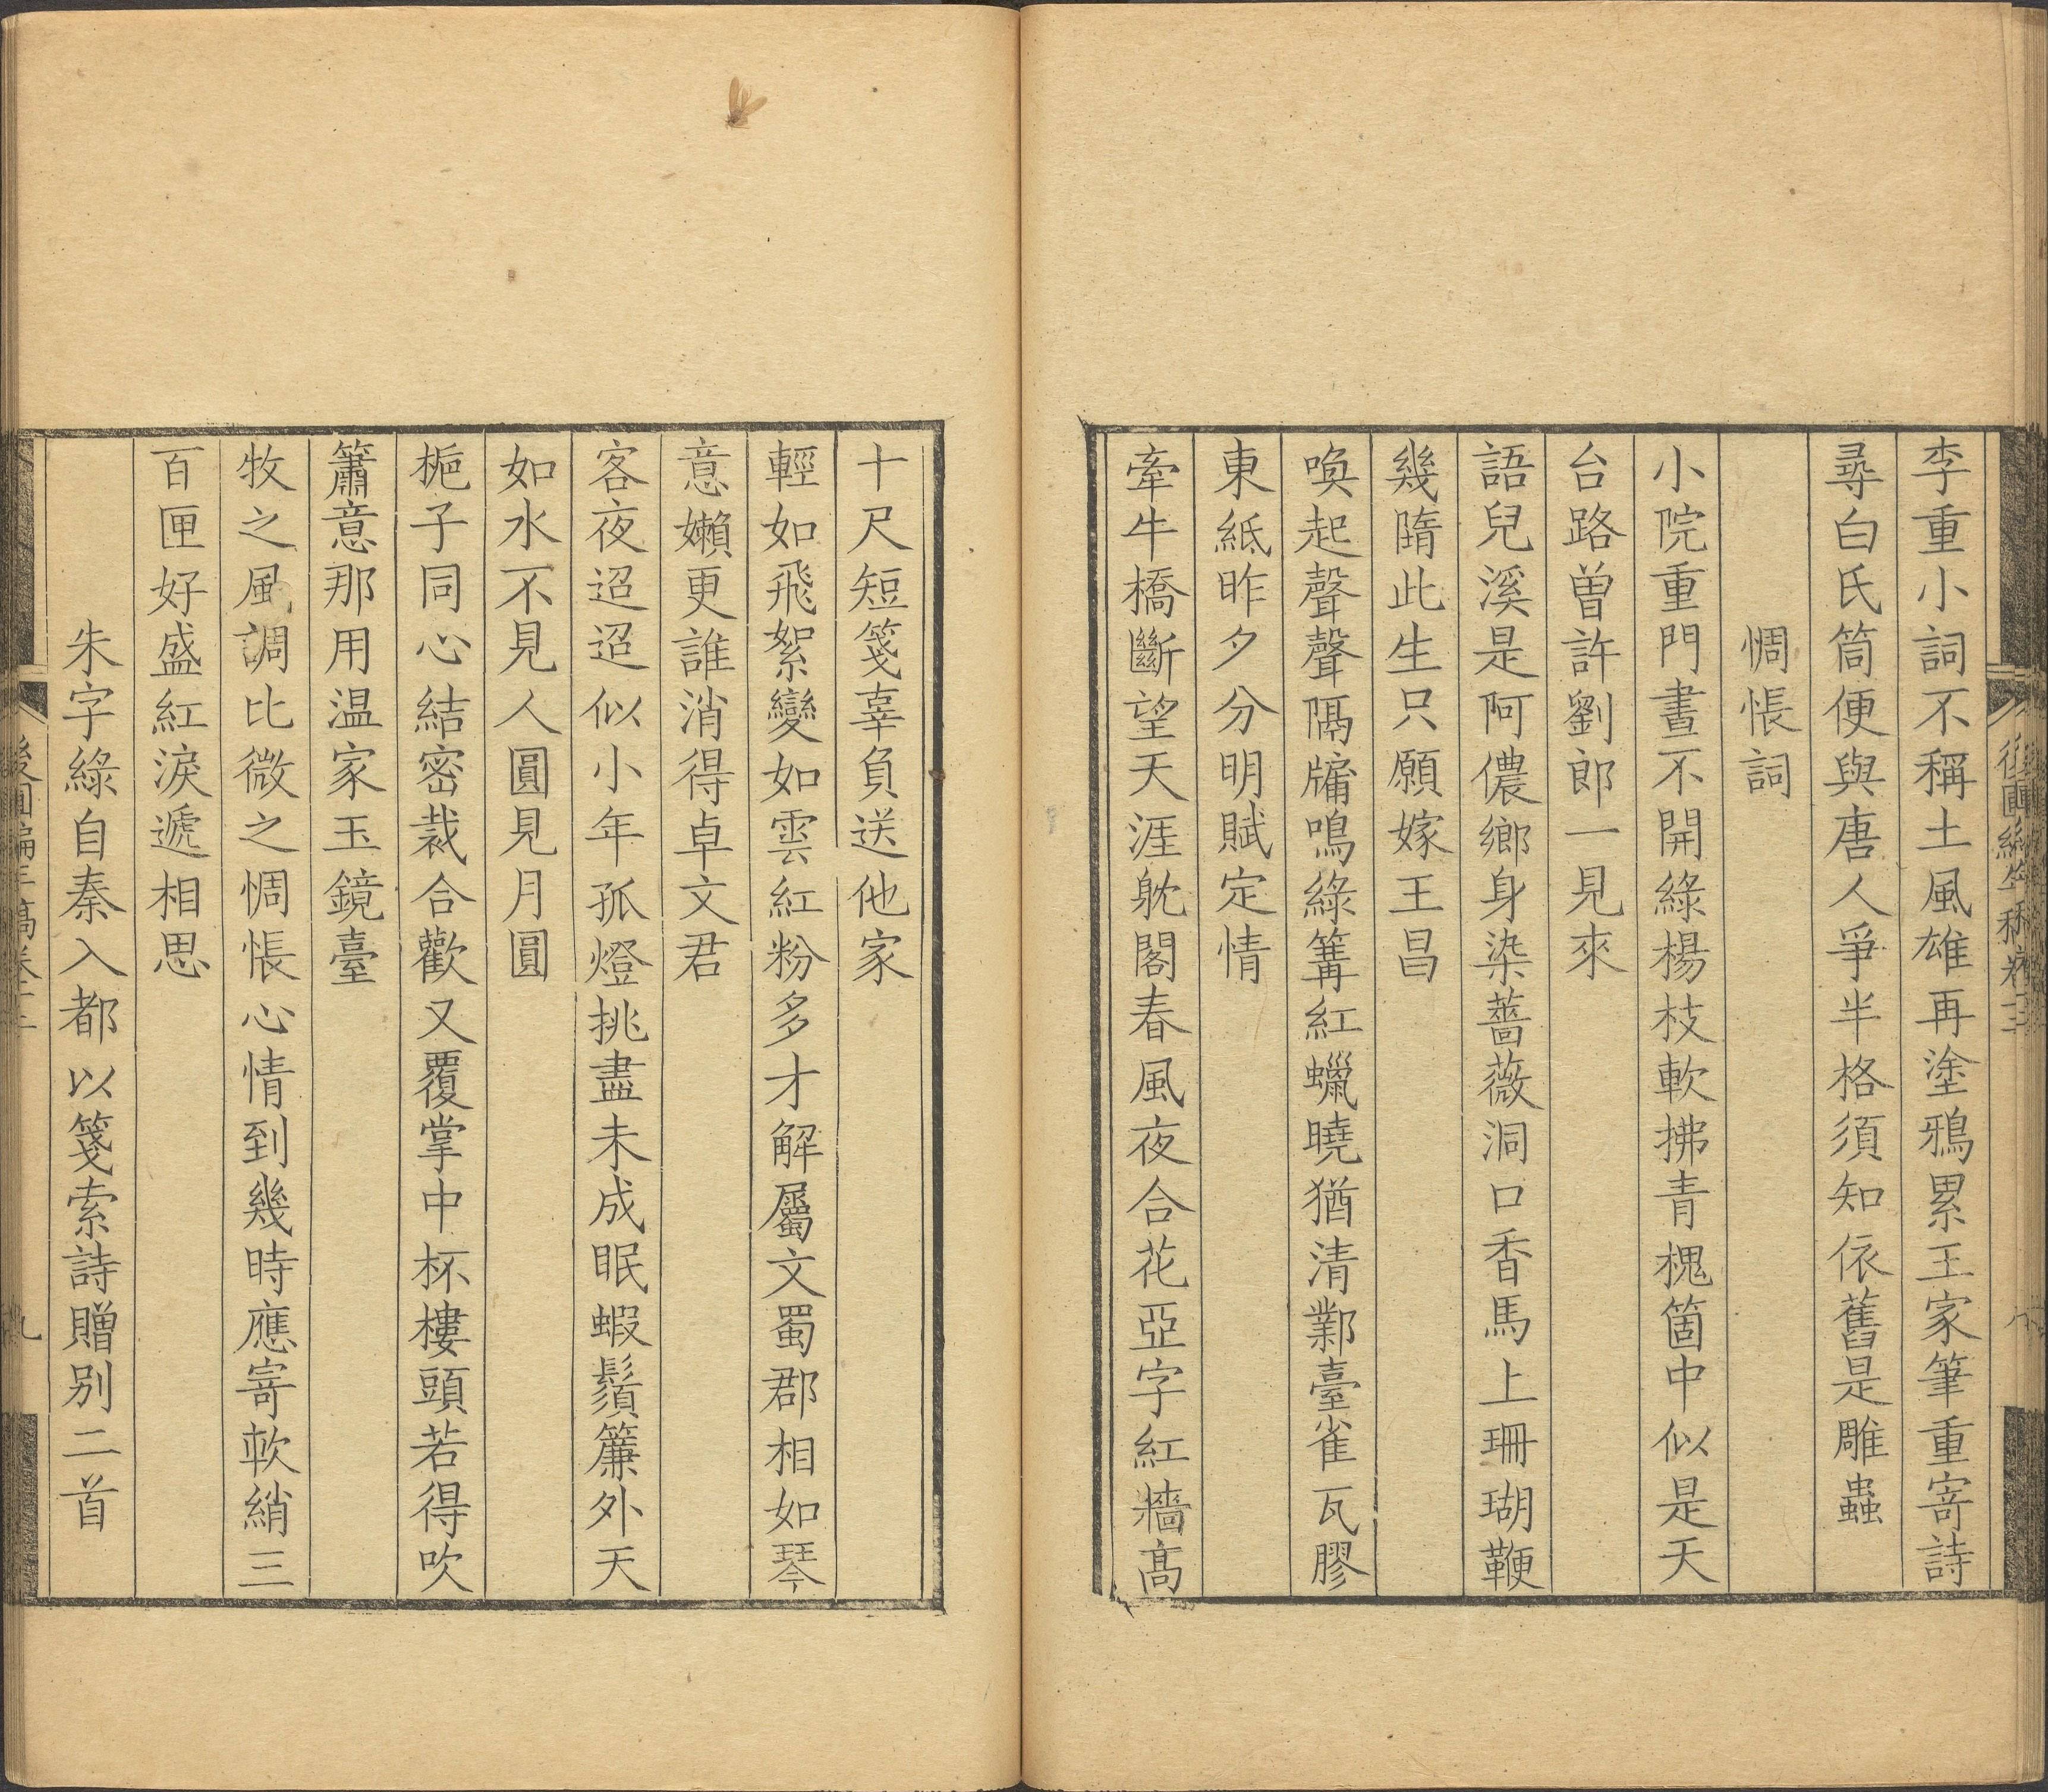 李重小詞不稱土風雄再塗鴉累王家筆重寄詩
尋白氏筒便與唐人爭半格須知依舊是雕蟲
惆悵詞
小院重門晝不開綠楊枝軟拂青槐箇中似是天
台路曽許劉郎一見來
語兒溪是阿儂鄉身染薔薇洞口香馬上珊瑚鞭
幾隋此生只願嫁王昌
喚起聲聲隔牖鳴綠篝紅蠟曉猶清鄴臺雀瓦膠
東紙昨夕分明賦定情
牽牛橋斷望天涯躭閣春風夜合花亞字紅牆髙
十尺短箋辜負送他家
輕如飛絮變如雲紅粉多才解屬文蜀郡相如琴
意嬾更誰消得卓文君
客夜迢迢似小年孤燈挑盡未成眠蝦鬚簾外天
如水不見人圓見月圓
梔子同心結密裁合歡又覆掌中杯樓頭若得吹
簫意那用温家玉鏡臺
牧之風調比微之惆悵心情到幾時應寄軟綃三
百匣好盛紅淚遞相思
朱字綠自秦入都以箋索詩贈别二首
後圃編年稿卷十二
九